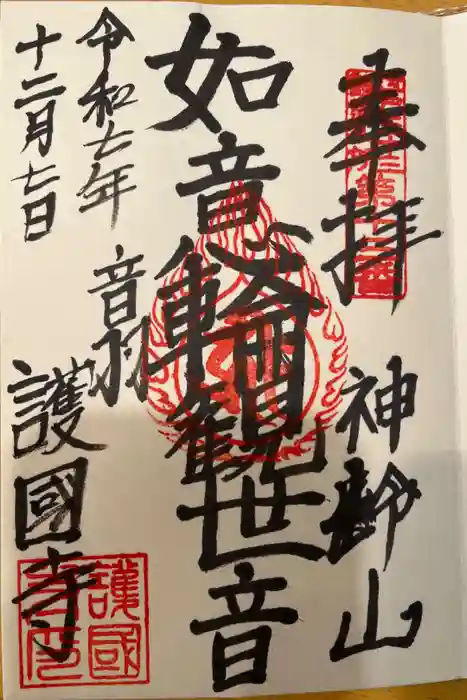 奉拝
神齢山
如意輪観世音
音羽
護國寺
令和七年
十二月七日
護國
寺印